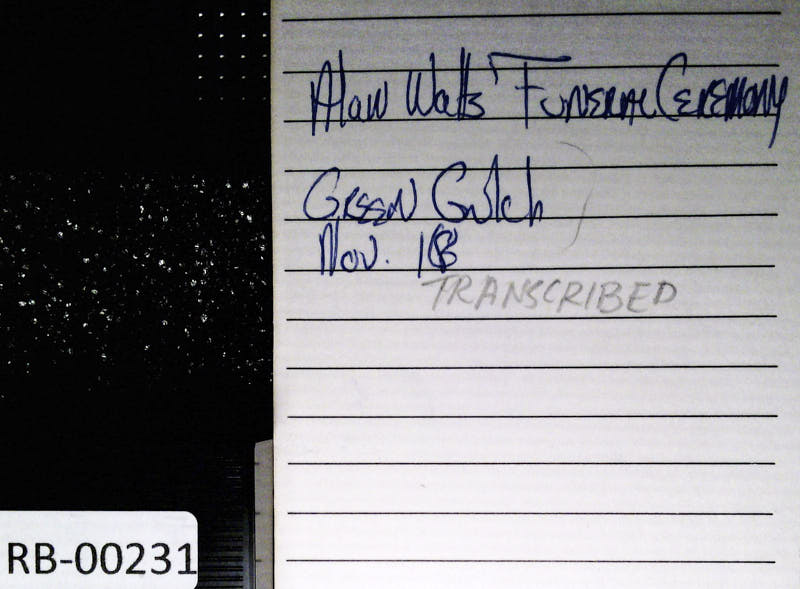 Alan Watts' Funeral Ceremony
Green Gulch
Nov.
TRANSCRIBED
RB-00231